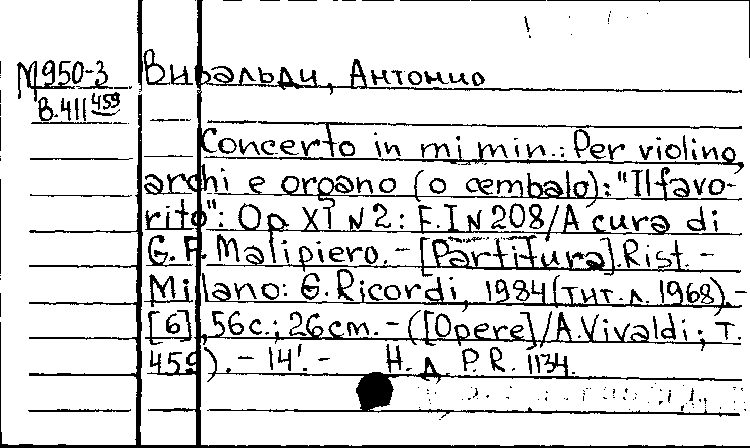 М950-3 Вивальди, Антонио
В.411 459
Concerto in mi min.: Per violino,
archi e organo (o cembalo): "Il favo-
rito": Op XI N 2: F. I N 208/A cura di
G. F. Malipiero. - [Partitura]. Rist. -
Milano: G. Ricordi, 1984 (тит. л. 1968). -
[6], 56 с.; 26 cm. - ([Opere]/A. Vivaldi; т.
459). - 14'. - Н. д. P.R. 1134.